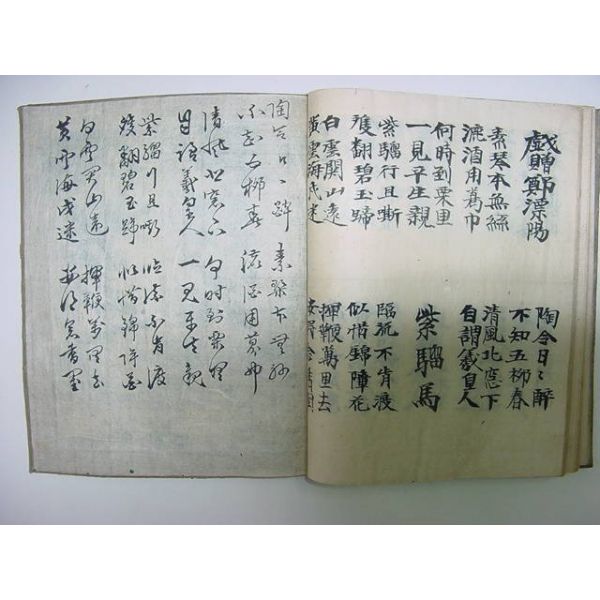 戯贈鄭漂陽
陶令日〻醉
不知五柳春
素琴本無絲
漉酒用葛巾
清風北窓下
自謂羲皇人
何時到栗里
一見平生親
紫騮馬
紫騮行且嘶
雙翻碧玉蹄
臨流不肯渡
似惜錦障花
白雲關山遠
黃雲海戍迷
揮鞭萬里去
安得念春閨
陶令日〻醉
不知五柳春
素琴本無絲
漉酒用葛巾
清風北窓下
自謂羲皇人
何時到栗里
一見平生親
紫騮行且嘶
雙翻碧玉蹄
臨流不肯渡
似惜錦障花
白雲關山遠
黃雲海戍迷
揮鞭萬里去
安得念春閨